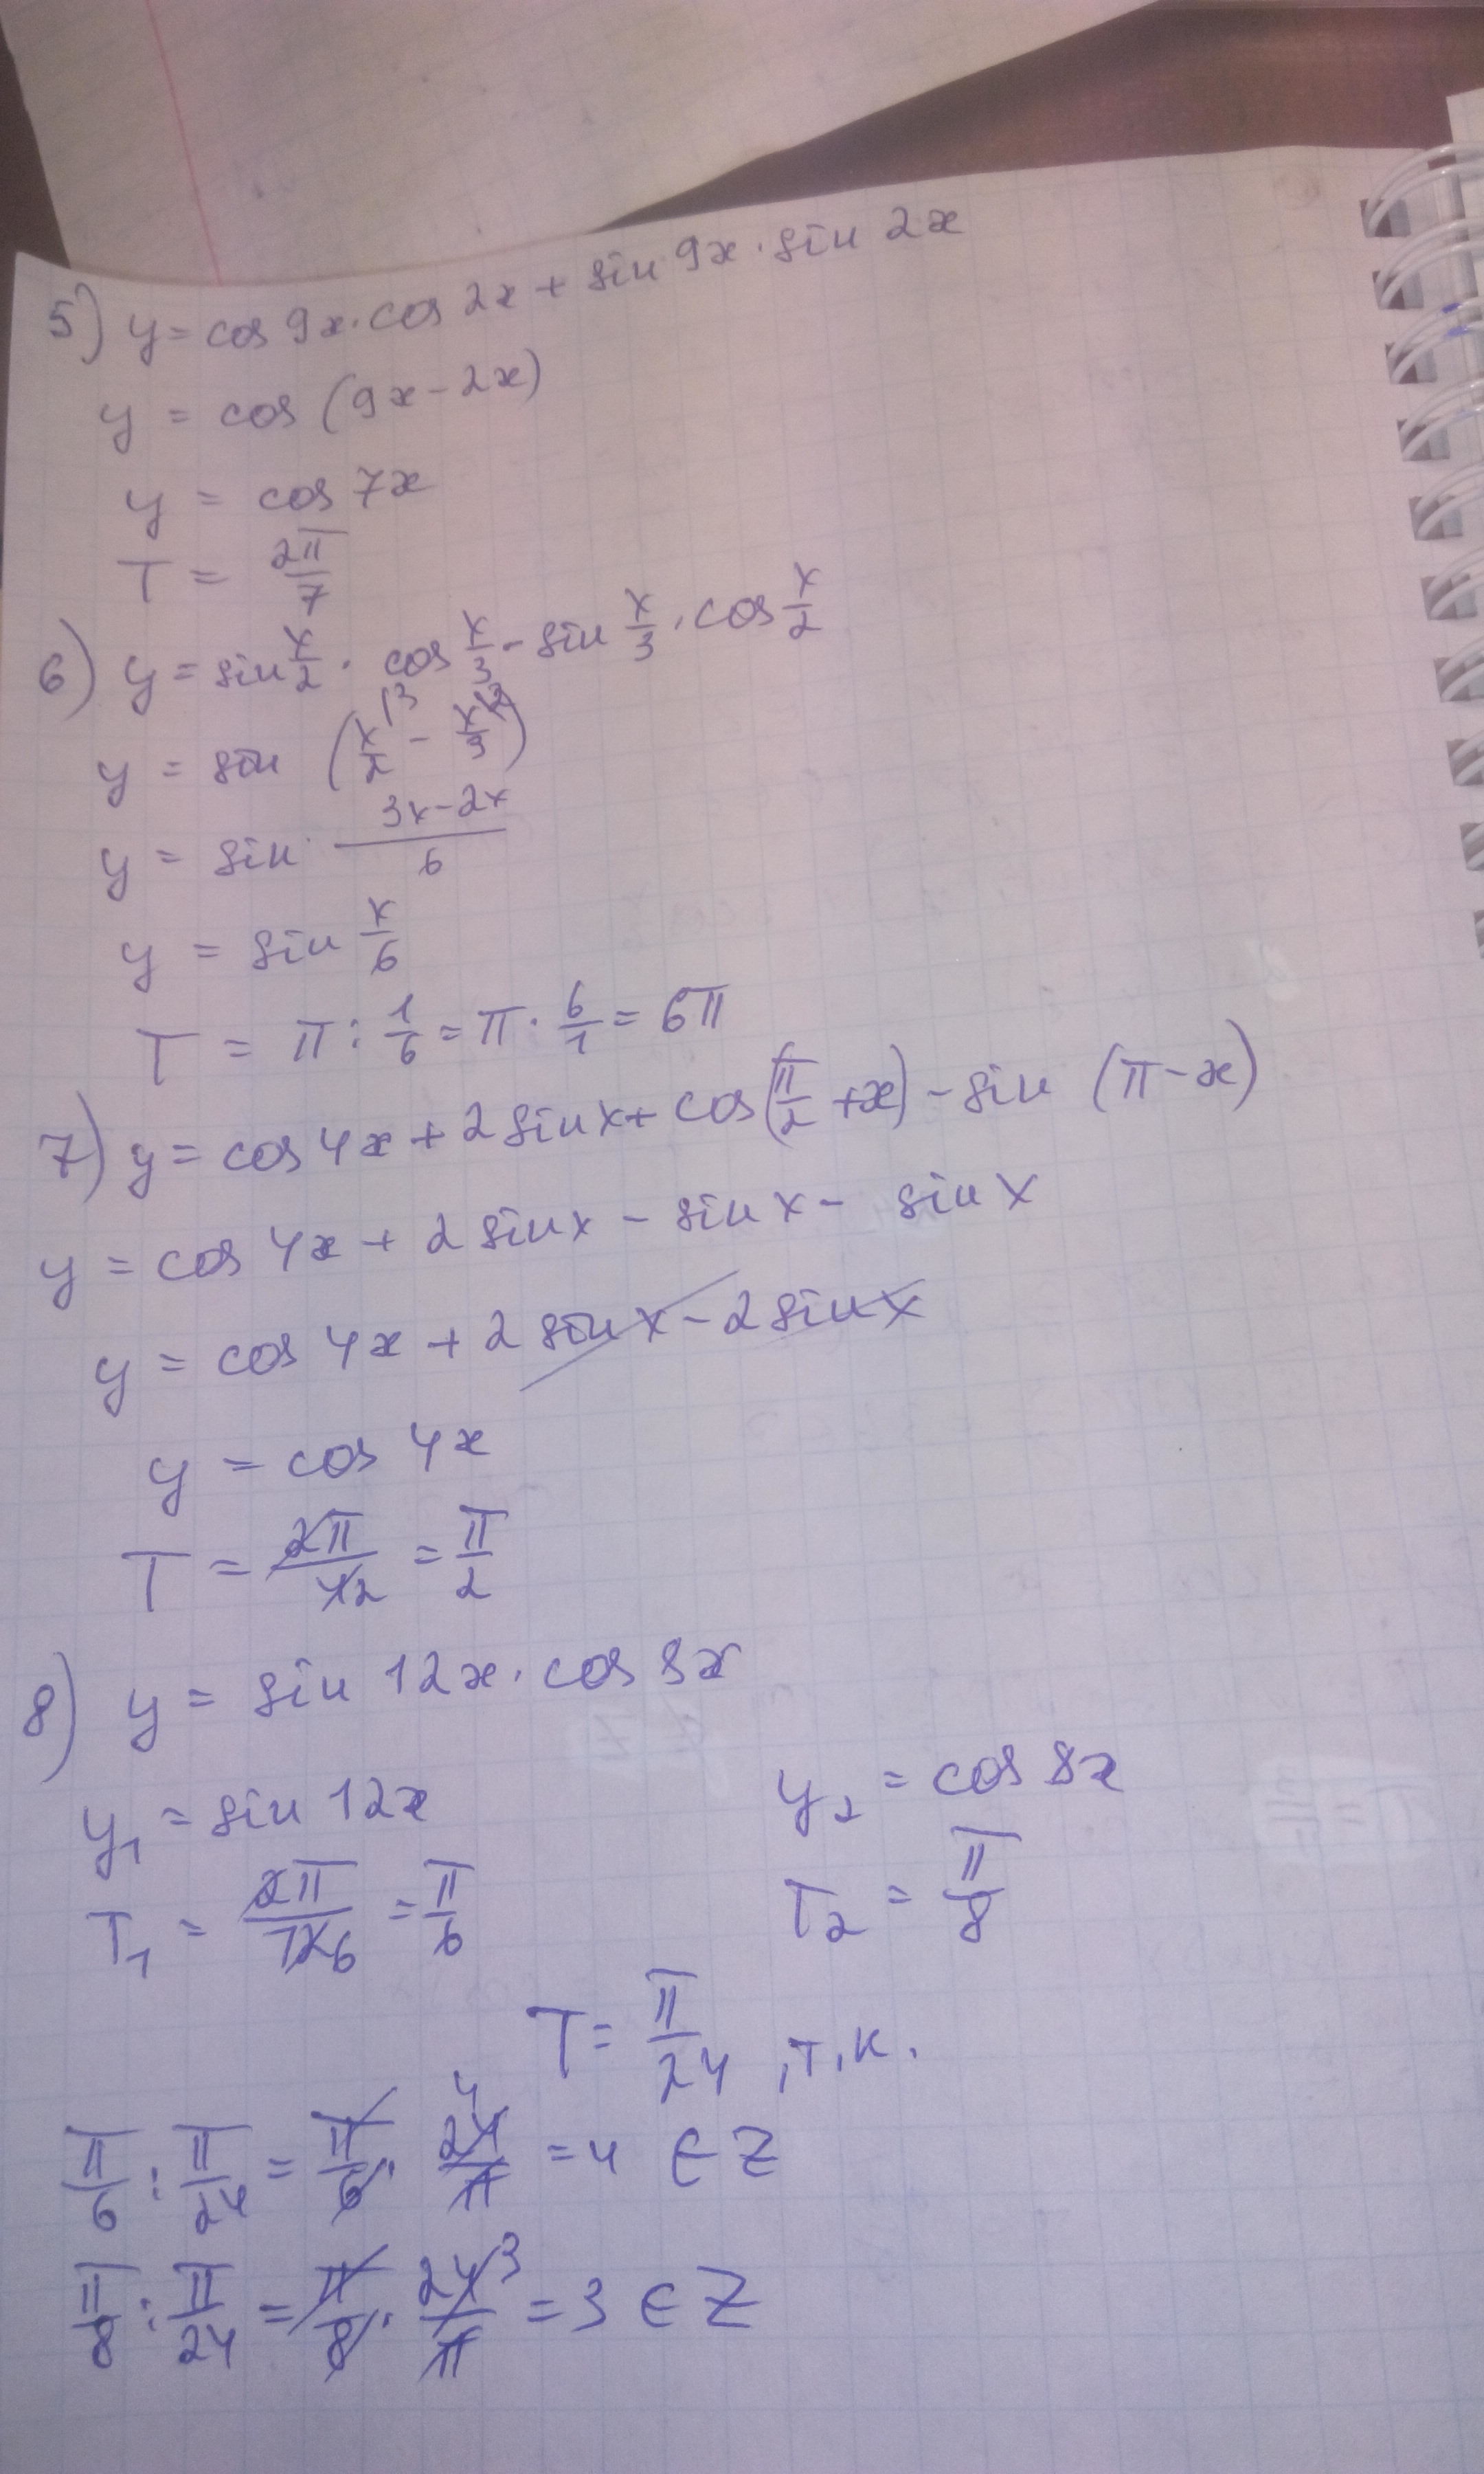 5) y = cos 9x · cos 2x + sin 9x · sin 2x
y = cos (9x - 2x)
y = cos 7x
T = 2π/7
6) y = sin x/2 · cos x/3 - sin x/3 · cos x/2
y = sin (x/2 \3 - x/3 \2)
y = sin (3x-2x)/6
y = sin x/6
T = π : 1/6 = π · 6/1 = 6π
7) y = cos 4x + 2 sin x + cos(π/2 + x) - sin (π - x)
y = cos 4x + 2 sin x - sin x - sin x
y = cos 4x + 2 sin x - 2 sin x
y = cos 4x
T = 2π/4 2 = π/2
8) y = sin 12x · cos 8x
y₁ = sin 12x y₂ = cos 8x
T₁ = 2π/12 6 = π/6 T₂ = π/8
T = π/24 , т.к.
π/6 : π/24 = π/6 · 24/π 4 = 4 ∈ Z
π/8 : π/24 = π/8 · 24/π 3 = 3 ∈ Z